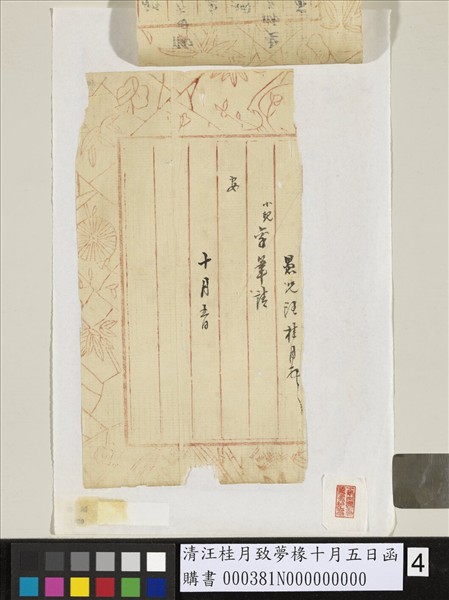 愚兄汪桂月
小兒 筆請
安
十月五日
清汪桂月致夢橡十月五日函
購書 000381N000000000
4